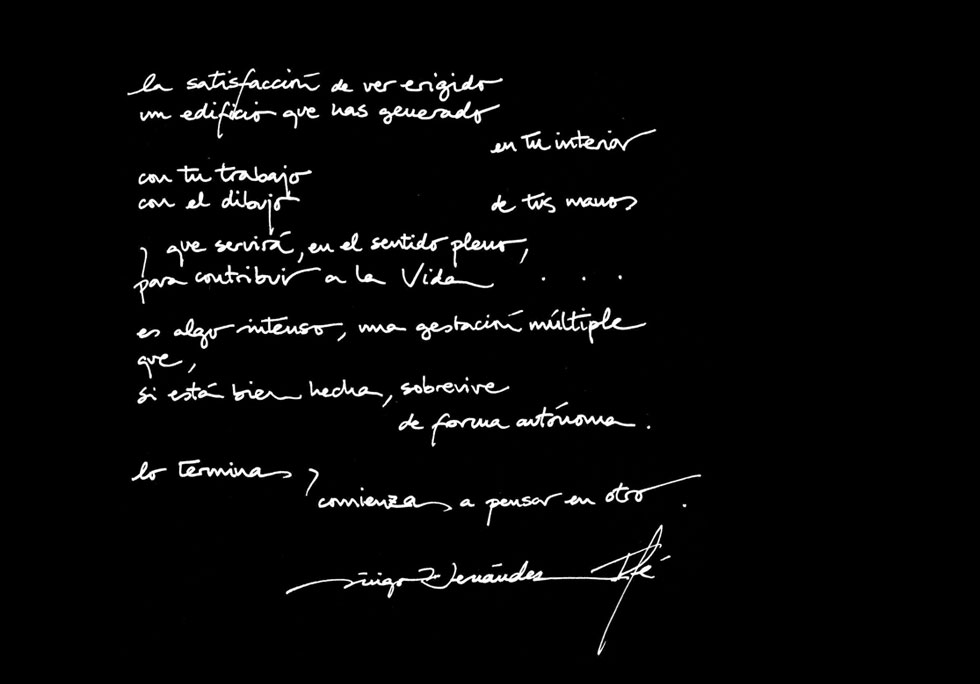 la satisfacción de ver erigido
un edificio que has generado
en tu interior
con tu trabajo
con el dibujo de tus manos
y que servirá, en el sentido pleno,
para contribuir a la Vida . . .
es algo intenso, una gestación múltiple
que,
si está bien hecha, sobrevive
de forma autónoma.
lo terminas y
comienzas a pensar en otro.